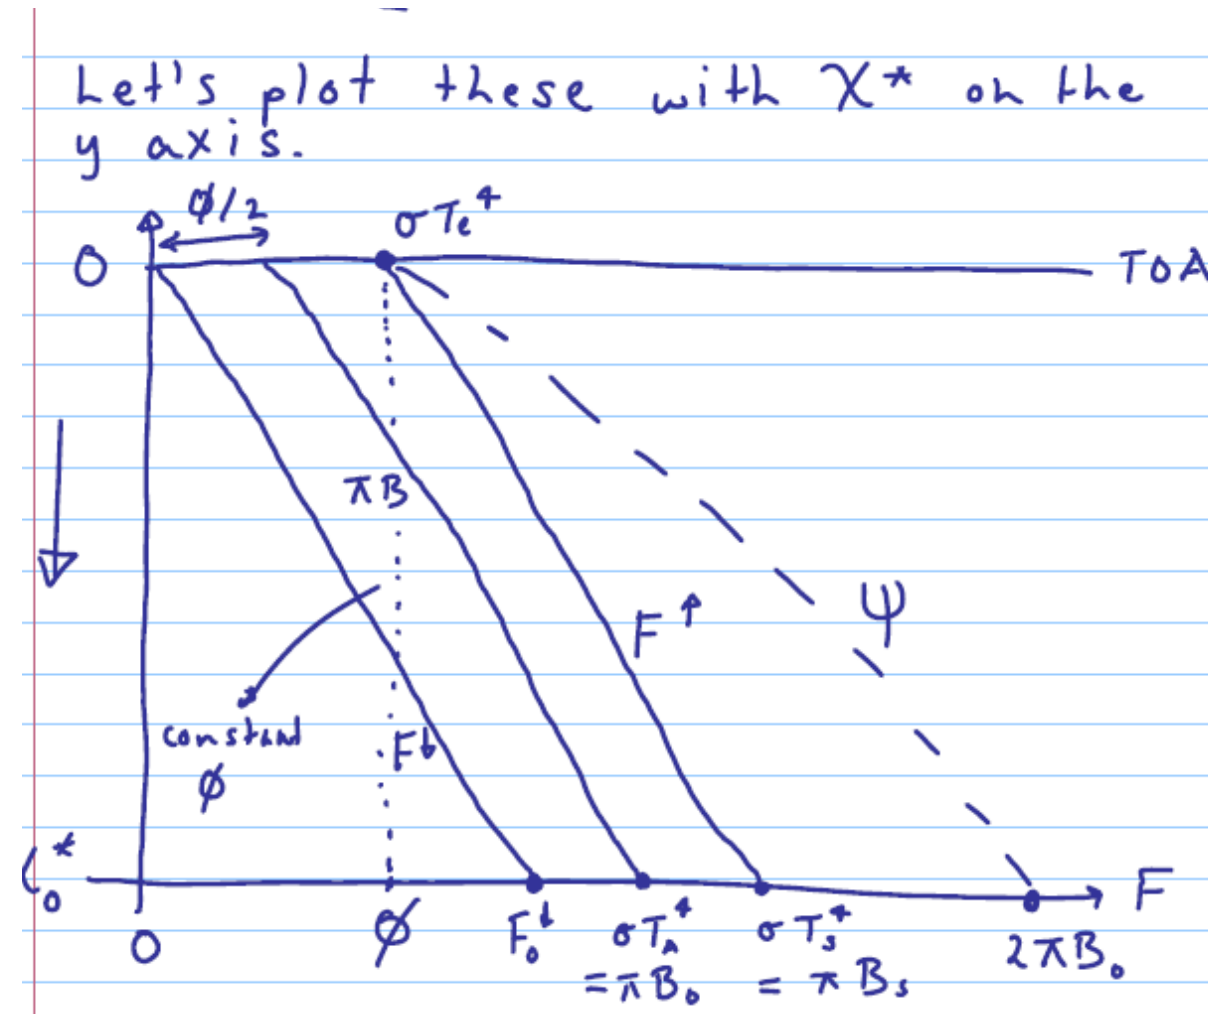 Let's plot these with χ* on the
y axis.
ϕ/2
σTe⁴
0
TOA
πB
F↑
ψ
constant
ϕ
F↓
*
0
F
0
ϕ
F₀↓
σTₐ⁴
= πB₀
σTₛ⁴
= πBₛ
2πB₀